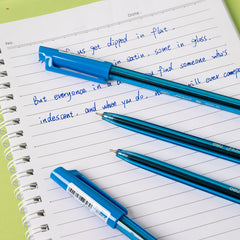 No.
Date.
us get dipped in flat,
in satin, some in gloss.
But everyone in a find someone who's
iridescent, and when you do, will ever comp